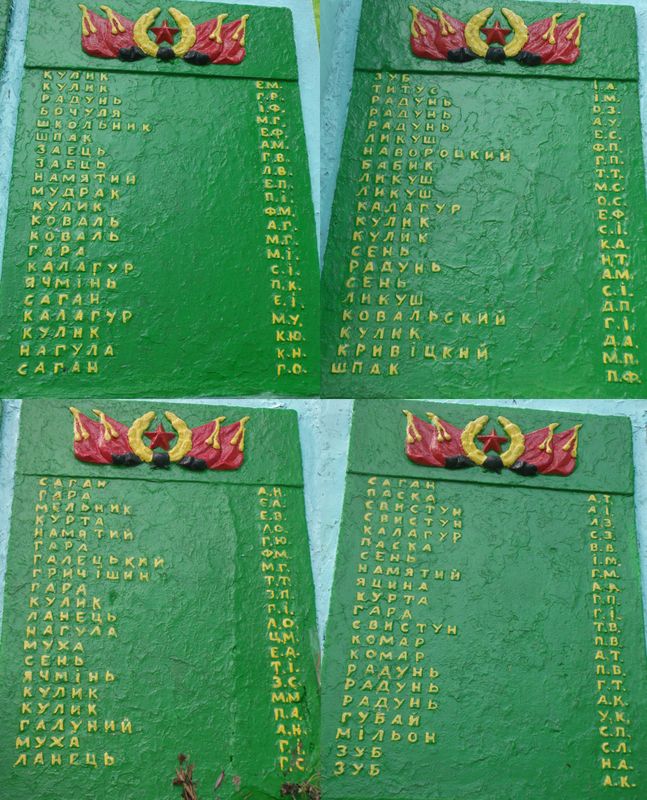 КУЛИК Є.М.
КУЛИК Г.Р.
РАДУНЬ І.Ф.
БОЧУЛЯ М.Г.
ШКОЛЬНИК Е.Ф.
ШПАК А.М.
ЗАЕЦЬ Г.В.
ЗАЕЦЬ Л.В.
НАМЯТИЙ Е.П.
МУДРАК П.І.
КУЛИК Ф.М.
КОВАЛЬ А.Г.
КОВАЛЬ М.Г.
ГАРА М.І.
КАЛАГУР С.І.
ЯЧМІНЬ П.К.
САГАН Е.І.
КАЛАГУР М.У.
КУЛИК К.Ю.
НАГУЛА К.Н.
САГАН Г.О.
ЗУБ І.А.
ТИТУС І.М.
РАДУНЬ О.З.
РАДУНЬ А.У.
РАДУНЬ Е.С.
ЛИКУШ Ф.П.
НАВОРОЦКИЙ Г.П.
БАБИК Т.Т.
ЛИКУШ М.С.
ЛИКУШ О.С.
КАЛАГУР Е.Ф.
КУЛИК С.І.
КУЛИК К.А.
СЕНЬ Н.Т.
РАДУНЬ А.М.
СЕНЬ С.І.
ЛИКУШ Д.П.
КОВАЛЬСКИЙ Г.І.
КУЛИК Д.А.
КРИВІЦКИЙ М.П.
ШПАК П.Ф.
САГАН А.Н.
ГАРА Є.А.
МЕЛЬНИК Е.В.
КУРТА Л.О.
НАМЯТИЙ Г.Ю.
ГАРА Ф.М.
ГАЛЕЦЬКИЙ М.Г.
ГРИЧІШИН Т.Т.
ГАРА З.П.
КУЛИК П.І.
ЛАНЕЦЬ Л.О.
НАГУЛА Ц.М.
МУХА Е.А.
СЕНЬ Т.І.
ЯЧМІНЬ З.С.
КУЛИК М.М.
КУЛИК П.А.
ГАЛУНИЙ А.Н.
МУХА Г.І.
ЛАНЕЦЬ Г.С.
САГАН А.Т.
ПАСКА А.І.
СВИСТУН Л.З.
СВИСТУН С.З.
КАЛАГУР В.В.
ПАСКА І.М.
СЕНЬ Г.М.
НАМЯТИЙ А.А.
ЯЦИНА Г.П.
КУРТА Г.І.
ГАРА Т.В.
СВИСТУН П.В.
КОМАР А.Т.
КОМАР П.В.
РАДУНЬ Г.Т.
РАДУНЬ А.К.
РАДУНЬ У.К.
ГУБАЙ С.П.
МІЛЬОН С.Л.
ЗУБ Н.А.
ЗУБ А.К.